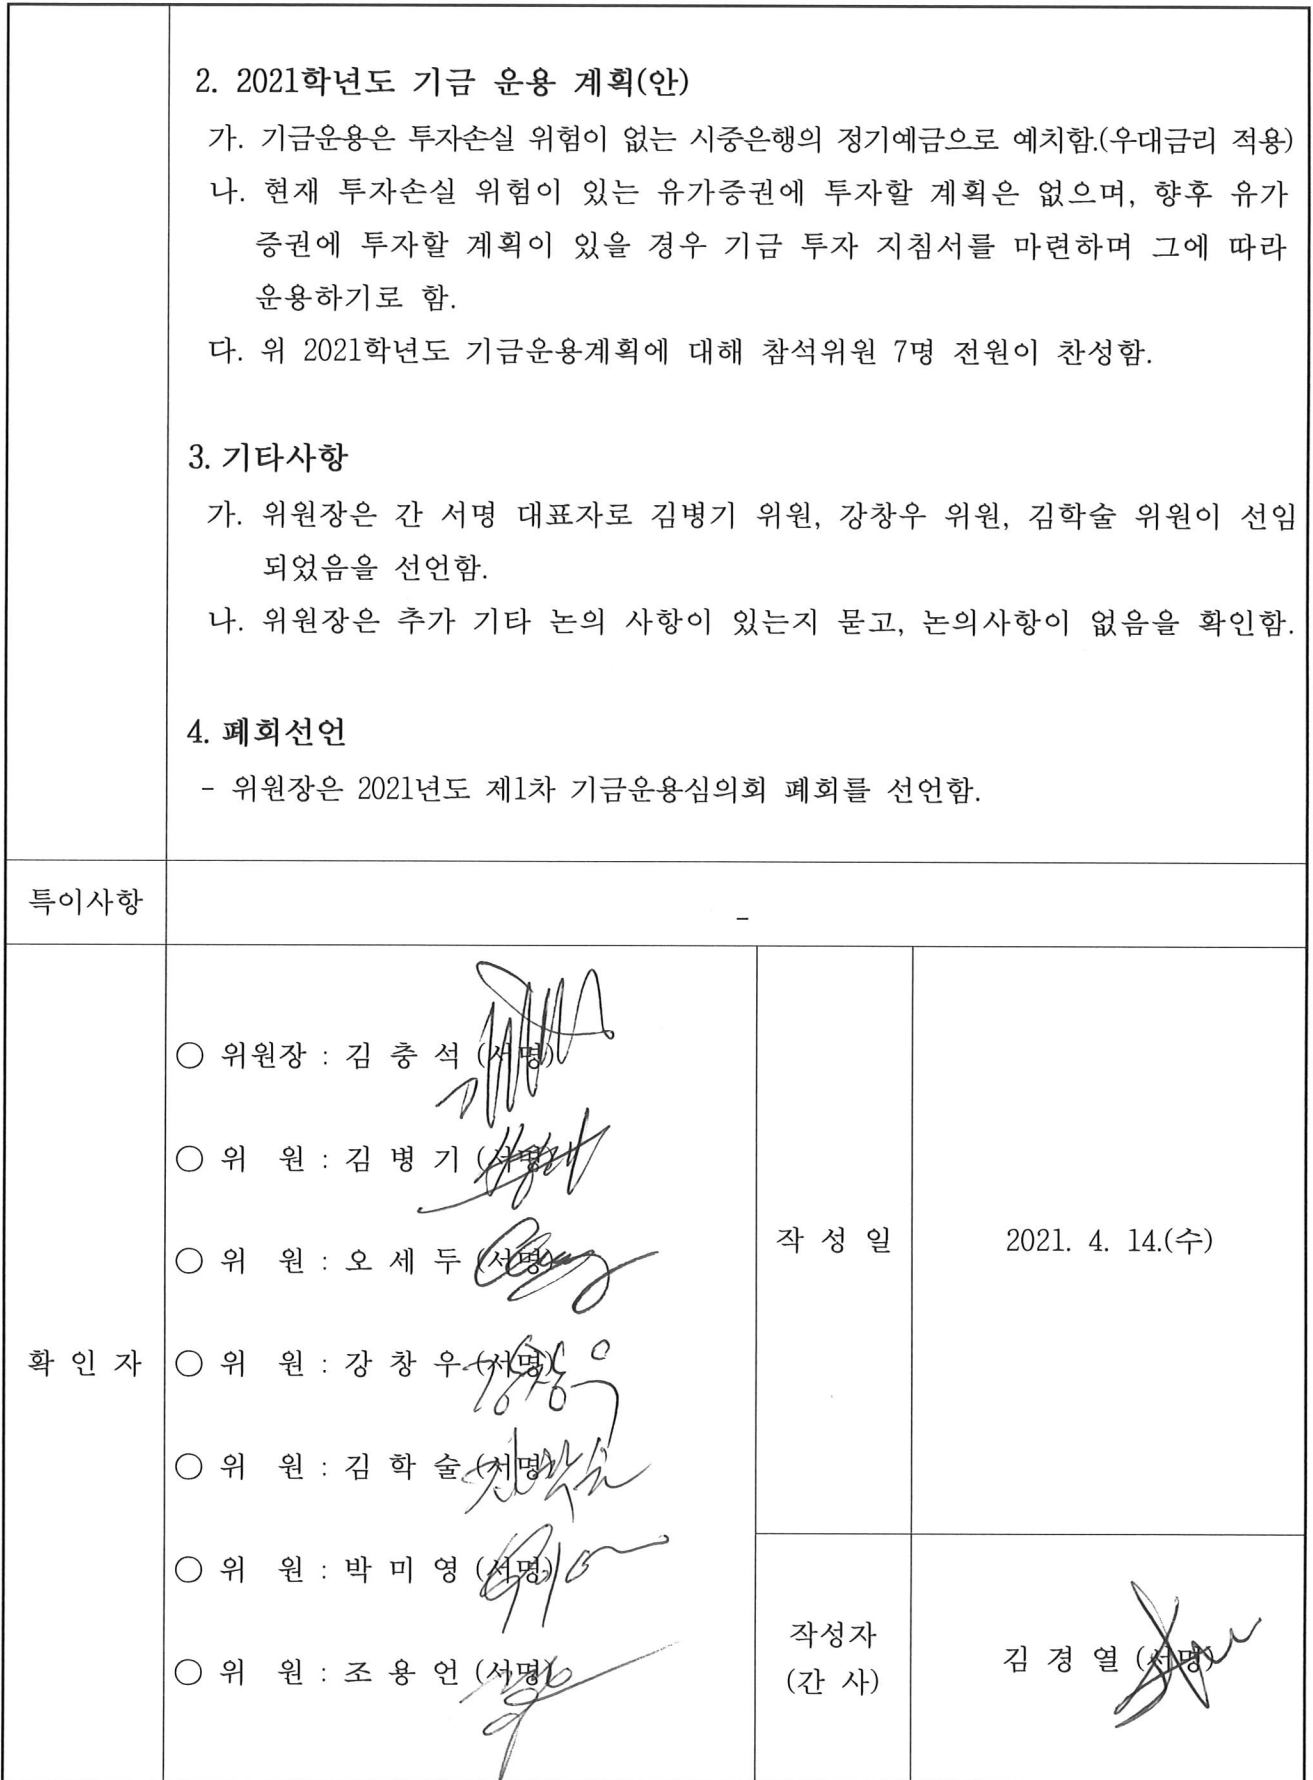 2. 2021학년도 기금 운용 계획(안)
가. 기금운용은 투자손실 위험이 없는 시중은행의 정기예금으로 예치함.(우대금리 적용)
나. 현재 투자손실 위험이 있는 유가증권에 투자할 계획은 없으며, 향후 유가
증권에 투자할 계획이 있을 경우 기금 투자 지침서를 마련하며 그에 따라
운용하기로 함.
다. 위 2021학년도 기금운용계획에 대해 참석위원 7명 전원이 찬성함.
3. 기타사항
가. 위원장은 간 서명 대표자로 김병기 위원, 강창우 위원, 김학술 위원이 선임
되었음을 선언함.
나. 위원장은 추가 기타 논의 사항이 있는지 묻고, 논의사항이 없음을 확인함.
4. 폐회선언
- 위원장은 2021년도 제1차 기금운용심의회 폐회를 선언함.
특이사항
-
확 인 자
○ 위원장 : 김 충 석 (서명)
○ 위 원 : 김 병 기 (서명)
○ 위 원 : 오 세 두 (서명)
○ 위 원 : 강 창 우 (서명)
○ 위 원 : 김 학 술 (서명)
○ 위 원 : 박 미 영 (서명)
○ 위 원 : 조 용 언 (서명)
작 성 일
2021. 4. 14.(수)
작성자
(간 사)
김 경 열 (서명)